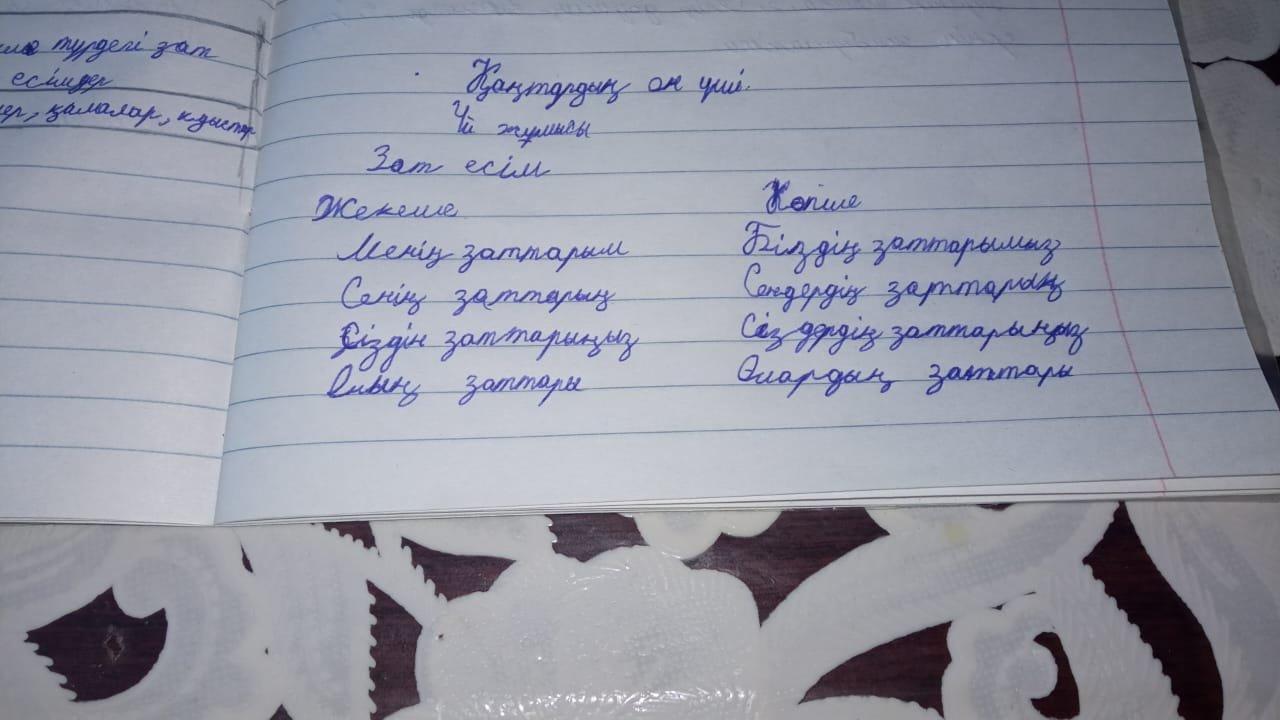 түрдегі зат
есімдер
қалалар, құстар
Қаңтардың он үші.
Үй жұмысы
Зат есім
Жекеше Көпше
Менің заттарым Біздің заттарымыз
Сенің заттарың Сендердің заттарың
Сіздін заттарыңыз Сіздердің заттарыңыз
Оның заттары Олардың заттары